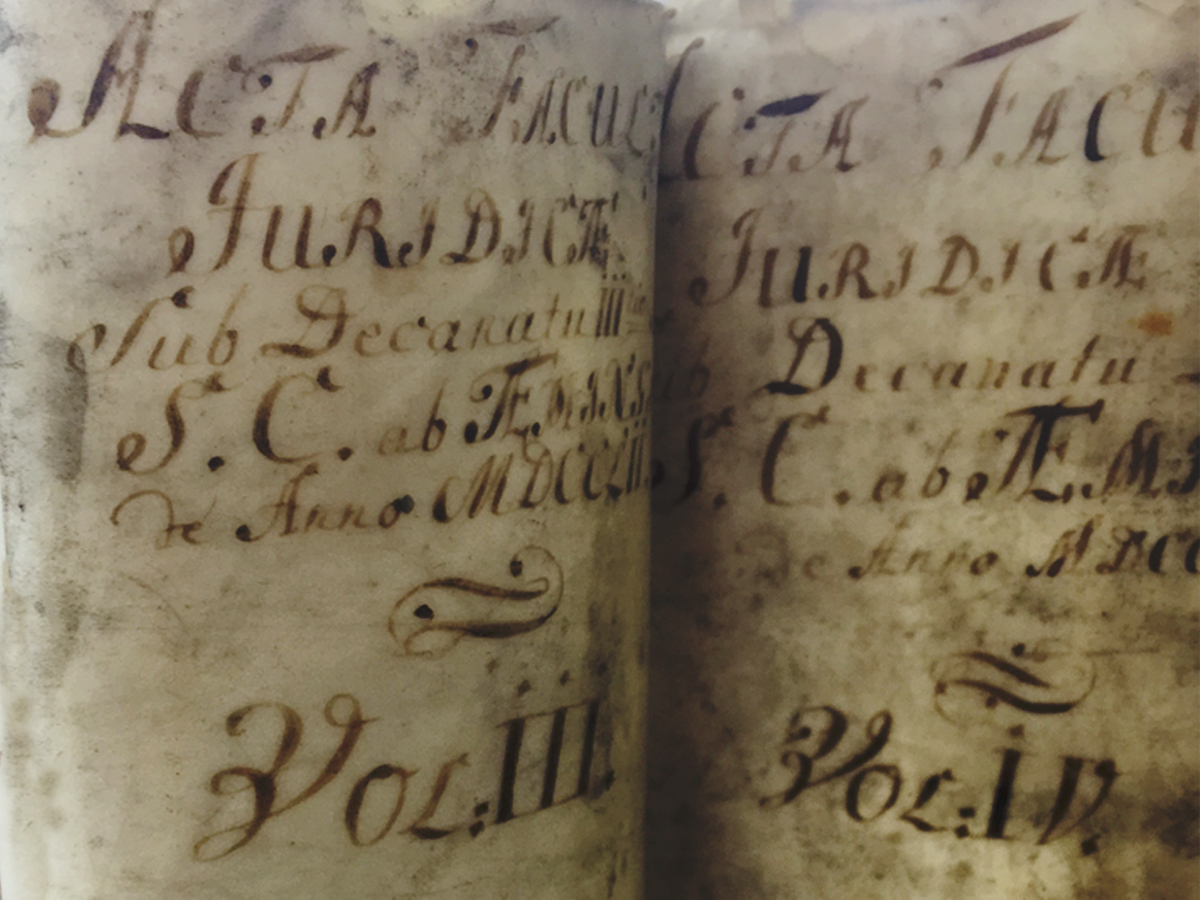 ACTA FACUL
JURIDICÆ
Sub Decanatu III
S. C. ab ÆMINS
de Anno MDCCLII
VOL: III.
ACTA FACU
JURIDICÆ
Sub Decanatu
S. C. ab Æ
de Anno MDCC
VOL: IV.